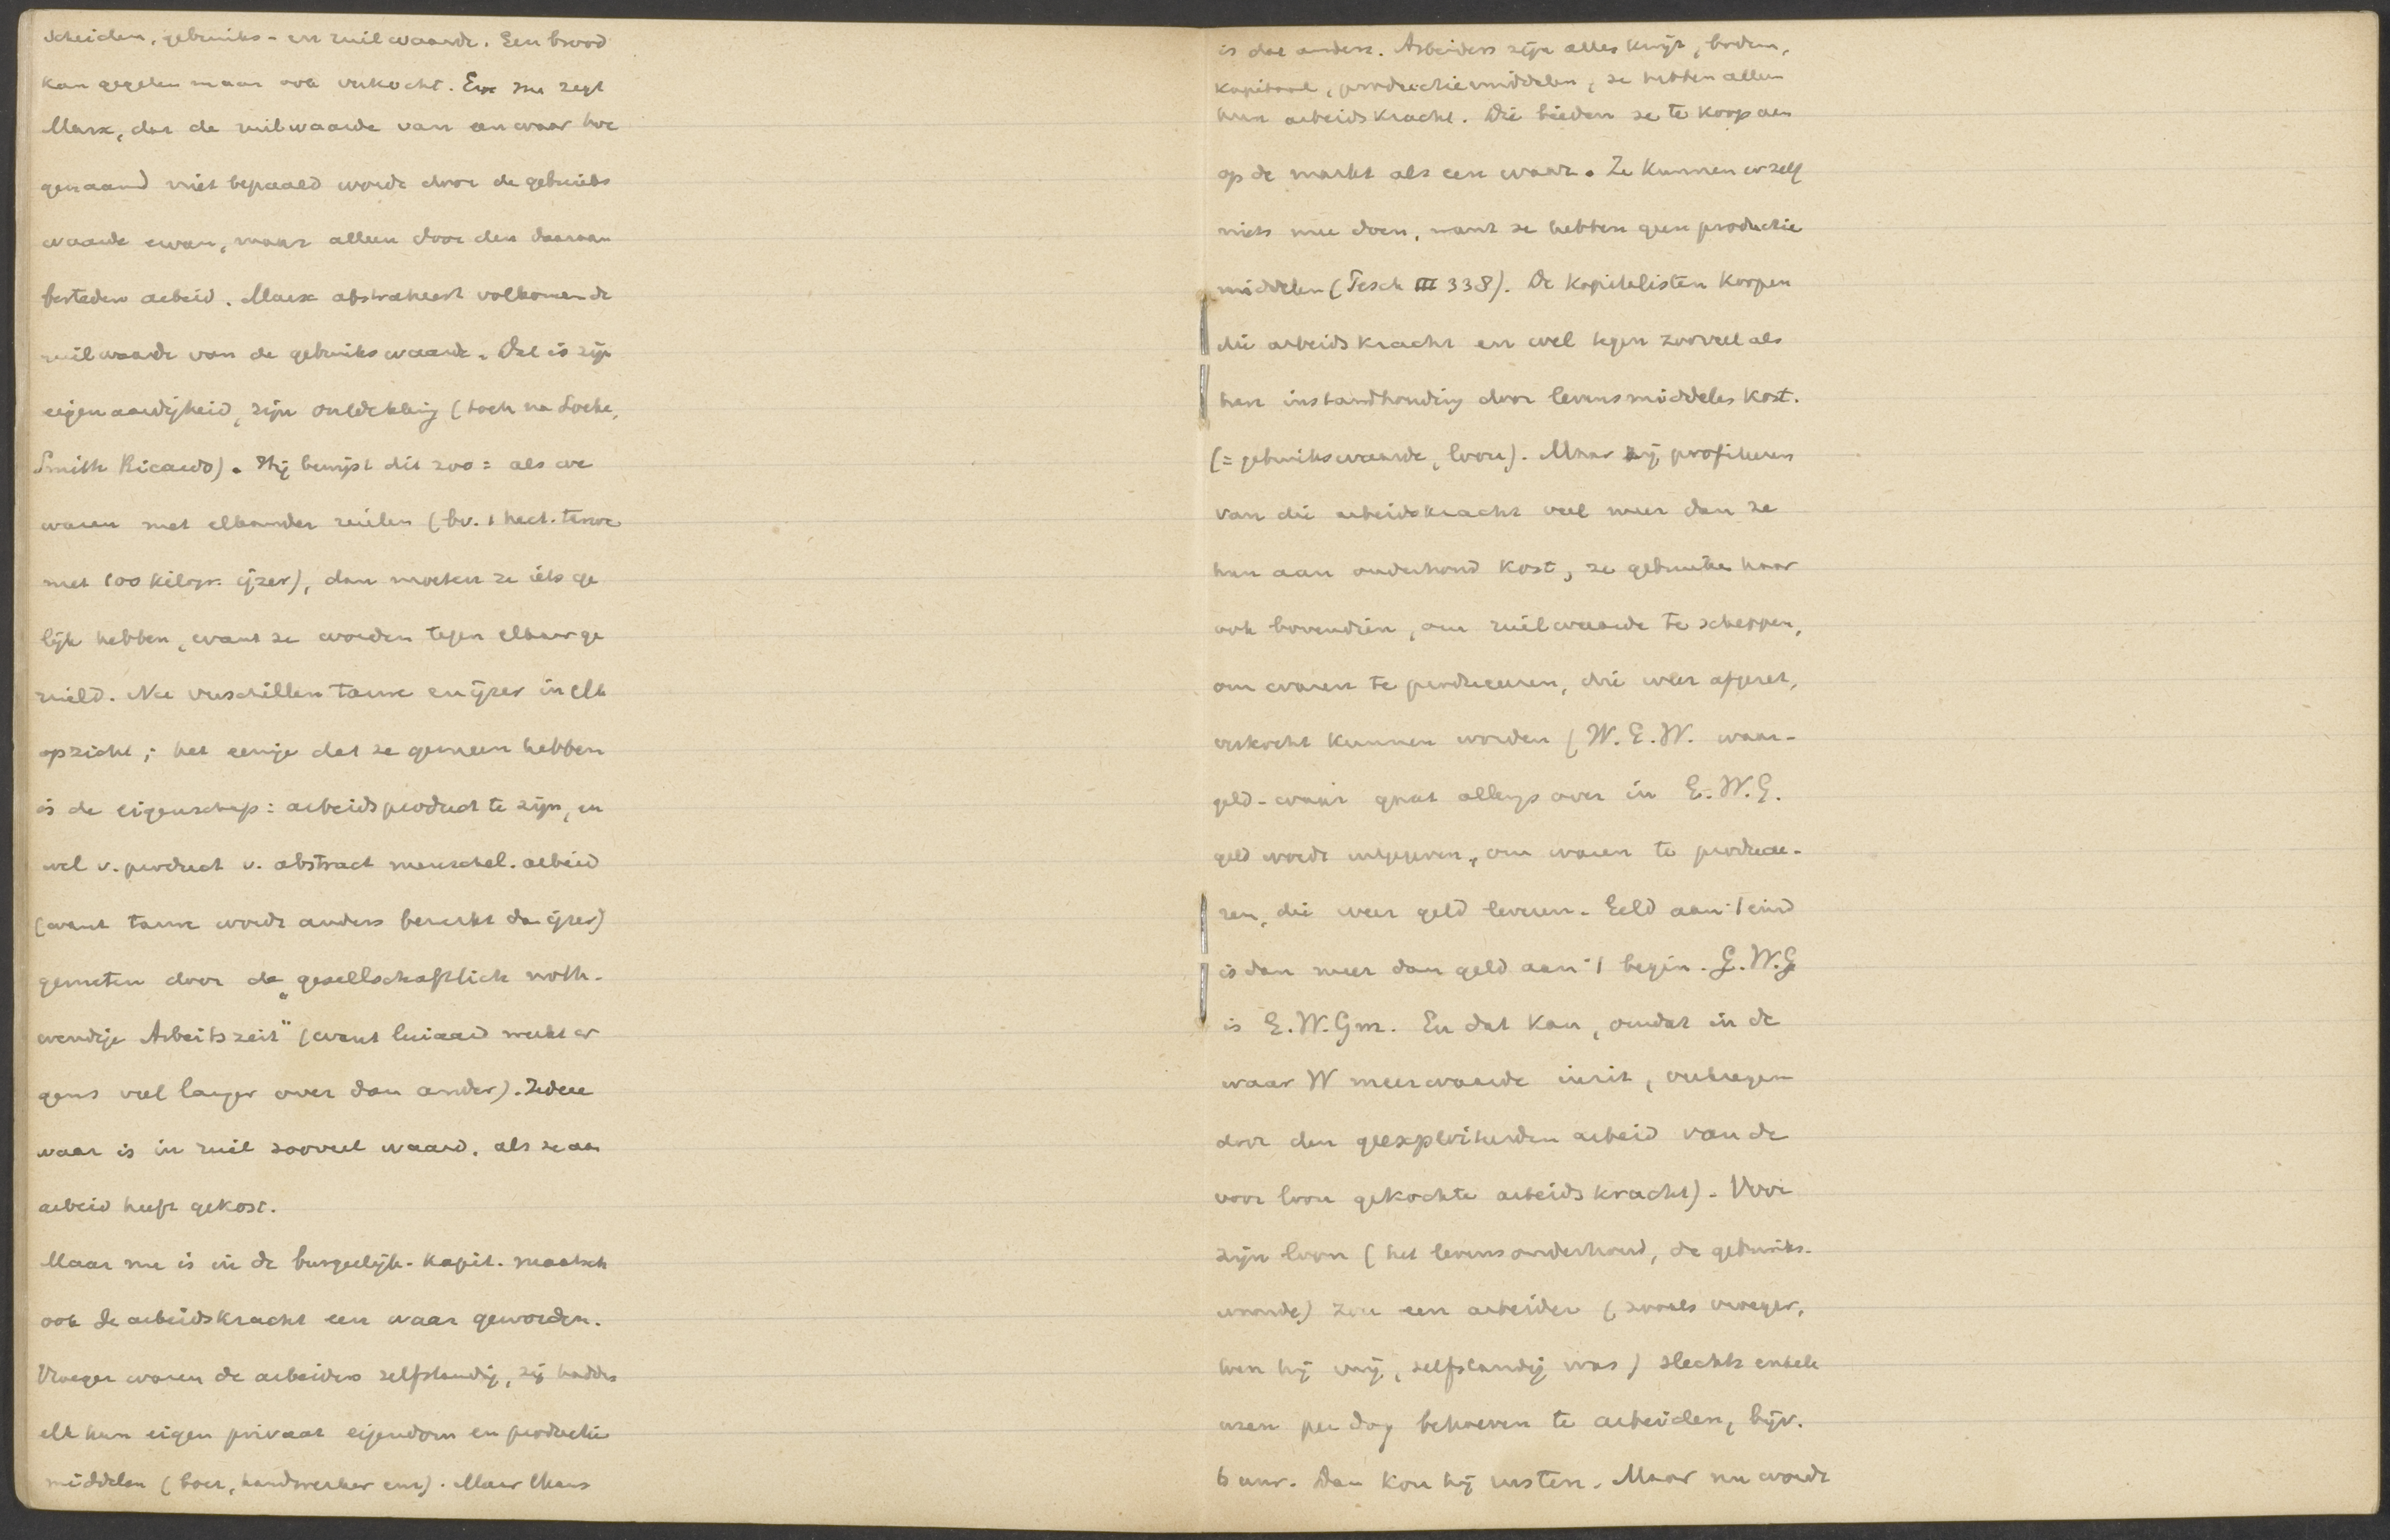 scheiden, gebruiks- en ruilwaarde. Een brood
kan gegeten maar ook verkocht. En nu zegt
Marx, dat de ruilwaarde van een waar hoe
genaamd niet bepaald wordt door de gebruiks
waarde ervan, maar alleen door den daaraan
besteden arbeid. Marx abstraheert volkomen de
ruilwaarde van de gebruikswaarde. Dat is zijn
eigenaardigheid, zijn ontdekking (toch na Locke,
Smith Ricardo). Hij bewijst dit zoo: als we
waren met elkander ruilen (bv. 1 hect. tarwe
met 100 kilogr. ijzer), dan moeten ze iets ge
lijk hebben, want ze worden tegen elkaar ge
ruild. Nu verschillen tarwe en ijzer in elk
opzicht; het eenige dat ze gemeen hebben
is de eigenschap: arbeidsproduct te zijn, en
wel v. product v. abstract menschel. arbeid
(want tarwe wordt anders bewerkt dan ijzer)
gemeten door de „gesellschaftlich noth-
wendige Arbeitszeit" (want luiaard werkt er
gens veel langer over dan ander). Iedere
waar is in ruil zooveel waard, als ze aan
arbeid heeft gekost.
Maar nu is in de burgerlijk-kapit. maatsch
ook de arbeidskracht een waar geworden.
Vroeger waren de arbeiders zelfstandig, zij hadden
elk hun eigen privaat eigendom en productie
middelen (boer, handwerker enz). Maar thans
is dat anders. Arbeiders zijn alles kwijt, bodem,
kapitaal, productiemiddelen, ze hebben alleen
hun arbeidskracht. Die bieden ze te koop aan
op de markt als een waar. Ze kunnen er zelf
niets mee doen, want ze hebben geen productie
middelen (Pesch III 338). De kapitalisten koopen
die arbeidskracht en wel tegen zooveel als
hen instandhouding door levensmiddelen kost.
(= gebruikswaarde, loon). Maar zij profiteren
van die arbeidskracht veel meer dan ze
hun aan onderhoud kost, ze gebruiken haar
ook bovendien, om ruilwaarde te scheppen,
om waren te produceeren, die weer afgezet,
verkocht kunnen worden (W. G. W. waar-
geld-waar gaat allengs over in G. W. G.
geld wordt uitgegeven, om waren te producee-
ren, die weer geld leveren. Geld aan 't eind
is dan meer dan geld aan 't begin. G. W. G
is G. W. Gm. En dat kan, omdat in de
waar W meerwaarde inzit, verkregen
door den geexploiteerden arbeid van de
voor loon gekochte arbeidskracht). Voor
zijn loon (het levensonderhoud, de gebruiks-
waarde) zou een arbeider (zooals vroeger,
toen hij vrij, zelfstandig was) slechts enkele
uren per dag behoeven te arbeiden, bijv.
6 uur. Dan kon hij rusten. Maar nu wordt